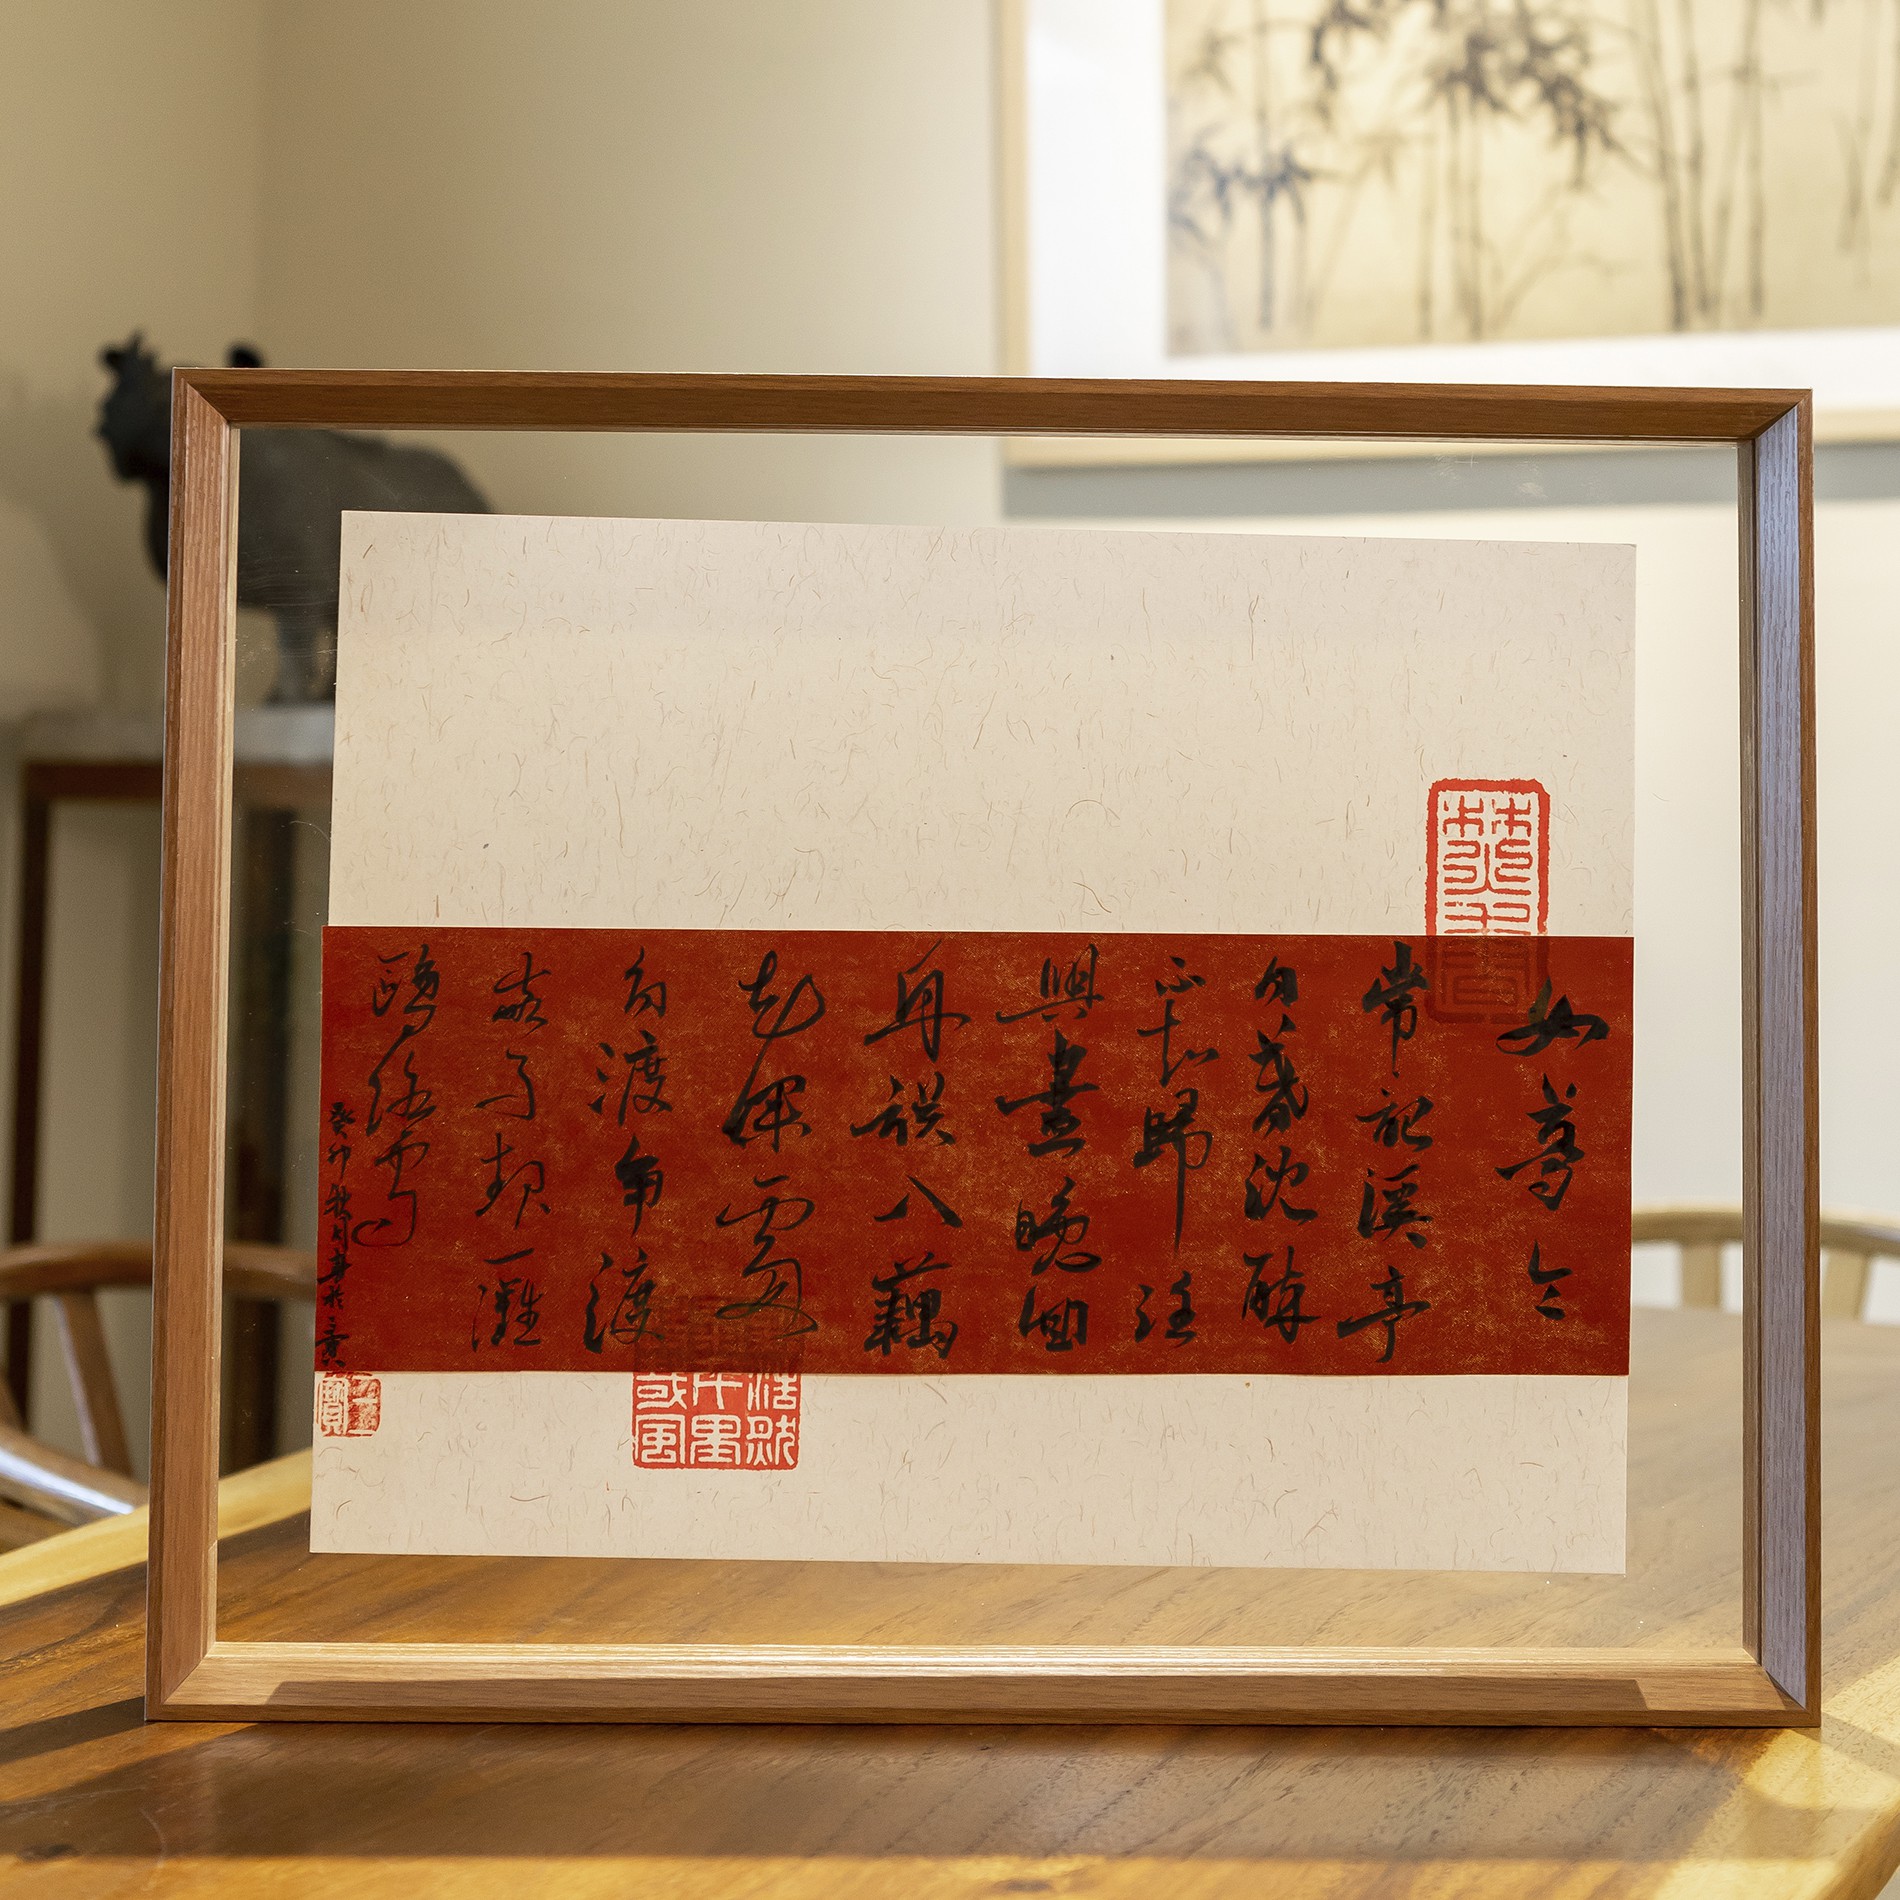 如夢令
常記溪亭
日暮沈醉
不知歸路
興盡晚回
舟誤入藕
花深處
爭渡爭渡
起一灘
鷗鷺
癸卯秋月書於